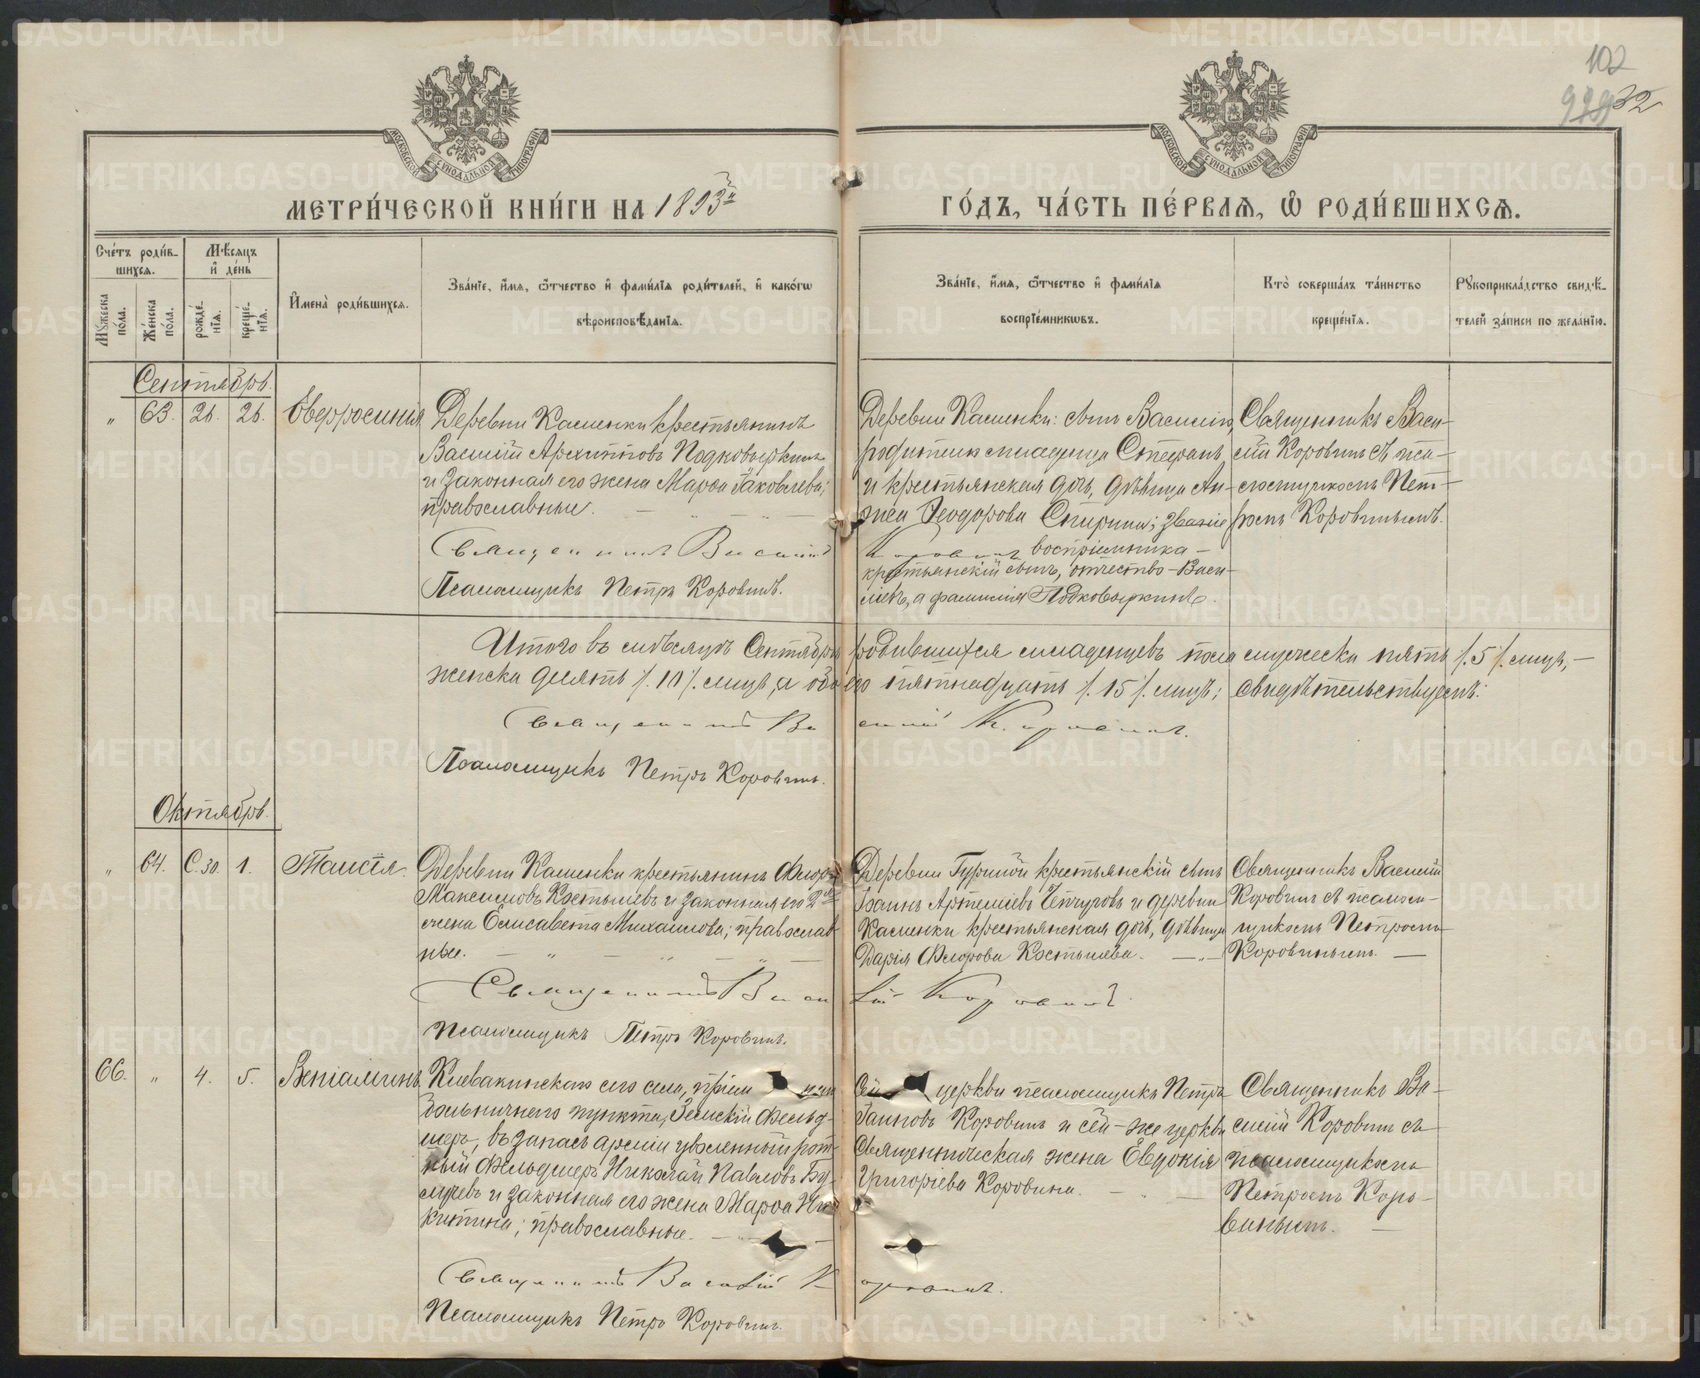 102
929 32
МОСКОВСКОЙ СѴНОДАЛЬНОЙ ТИПОГРАФІИ
МОСКОВСКОЙ СѴНОДАЛЬНОЙ ТИПОГРАФІИ
МЕТРИ́ЧЕСКОЙ КНИ́ГИ НА 1893й
ГО́ДЪ, ЧА́СТЬ ПЕ́РВАѦ, Ѡ҆ РОДИ́ВШИХСѦ.
Счѐтъ роди́в-
шихсѧ.
Мꙋ́жеска по́ла.
Же́нска по́ла.
Мѣ́сѧцъ
и҆ де́нь
рожде́-нїѧ.
креще́-нїѧ.
И҆мена̀ роди́вшихсѧ.
Зва́нїе, и҆́мѧ, ѻ҆́тчество и҆ фами́лїѧ роди́телей, и҆ како́гѡ
вѣроисповѣ́данїѧ.
Зва́нїе, и҆́мѧ, ѻ҆́тчество и҆ фами́лїѧ
воспрїе́мникѡвъ.
Кто̀ соверша́лъ та́инство
креще́нїѧ.
Рꙋкоприкла́дство свидѣ́-
телей за́писи по жела́нїю.
Сентябрь.
" 63. 26. 26. Евфросинія
Деревни Каменки крестьянинъ
Василій Архиповъ Подковыркинъ
и законная его жена Марѳа Іаковлева;
православные.
Священникъ Василій Коровинъ
Псаломщикъ Петръ Коровинъ.
Деревни Каменки: сынъ Василія,
родителя младенца Стефанъ
и крестьянская дочь, дѣвица Ан-
на Ѳеодорова Спирина; званіе
воспріемника –
крестьянскій сынъ, отчество – Васи-
льевъ, а фамилія Подковыркинъ.
Священникъ Васи-
лій Коровинъ съ пса-
ломщикомъ Пет-
ромъ Коровинымъ.
Итого въ мѣсяцѣ Сентябрѣ родившихся младенцевъ пола мужеска пять /.5/. лицъ, –
женска десять /.10/. лицъ, а обоего пятнадцать /.15/. лицъ; свидѣтельствуемъ:
Священникъ Василій Коровинъ.
Псаломщикъ Петръ Коровинъ.
Октябрь.
" 64. С. 30. 1. Таисія.
Деревни Каменки крестьянинъ Флоръ
Максимовъ Костылевъ и законная его 2я
жена Елисавета Михаилова; православ-
ные.
Священникъ Василій Коровинъ
Псаломщикъ Петръ Коровинъ.
Деревни Гуриной крестьянскій сынъ
Іоаннъ Артеміевъ Чепчуговъ и деревни
Каменки крестьянская дочь, дѣвица
Дарія Флорова Костылева.
Священникъ Василій
Коровинъ съ псалом-
щикомъ Петромъ
Коровинымъ.
66. " 4. 5. Веніаминъ
Клевакинскаго сего села, пріем
больничнаго пункта, Земскій Фельд-
шеръ, въ запасъ арміи уволенный рот-
ный Фельдшеръ Николай Павловъ
и законная его жена Марѳа Ни-
китина; православные.
Священникъ Василій Коровинъ.
Псаломщикъ Петръ Коровинъ.
Сей церкви псаломщикъ Петръ
Іаиновъ Коровинъ и сей-же церкви
Священническая жена Евдокія
Григоріева Коровина.
Священникъ Ва-
силій Коровинъ съ
псаломщикомъ
Петромъ Коро-
винымъ.